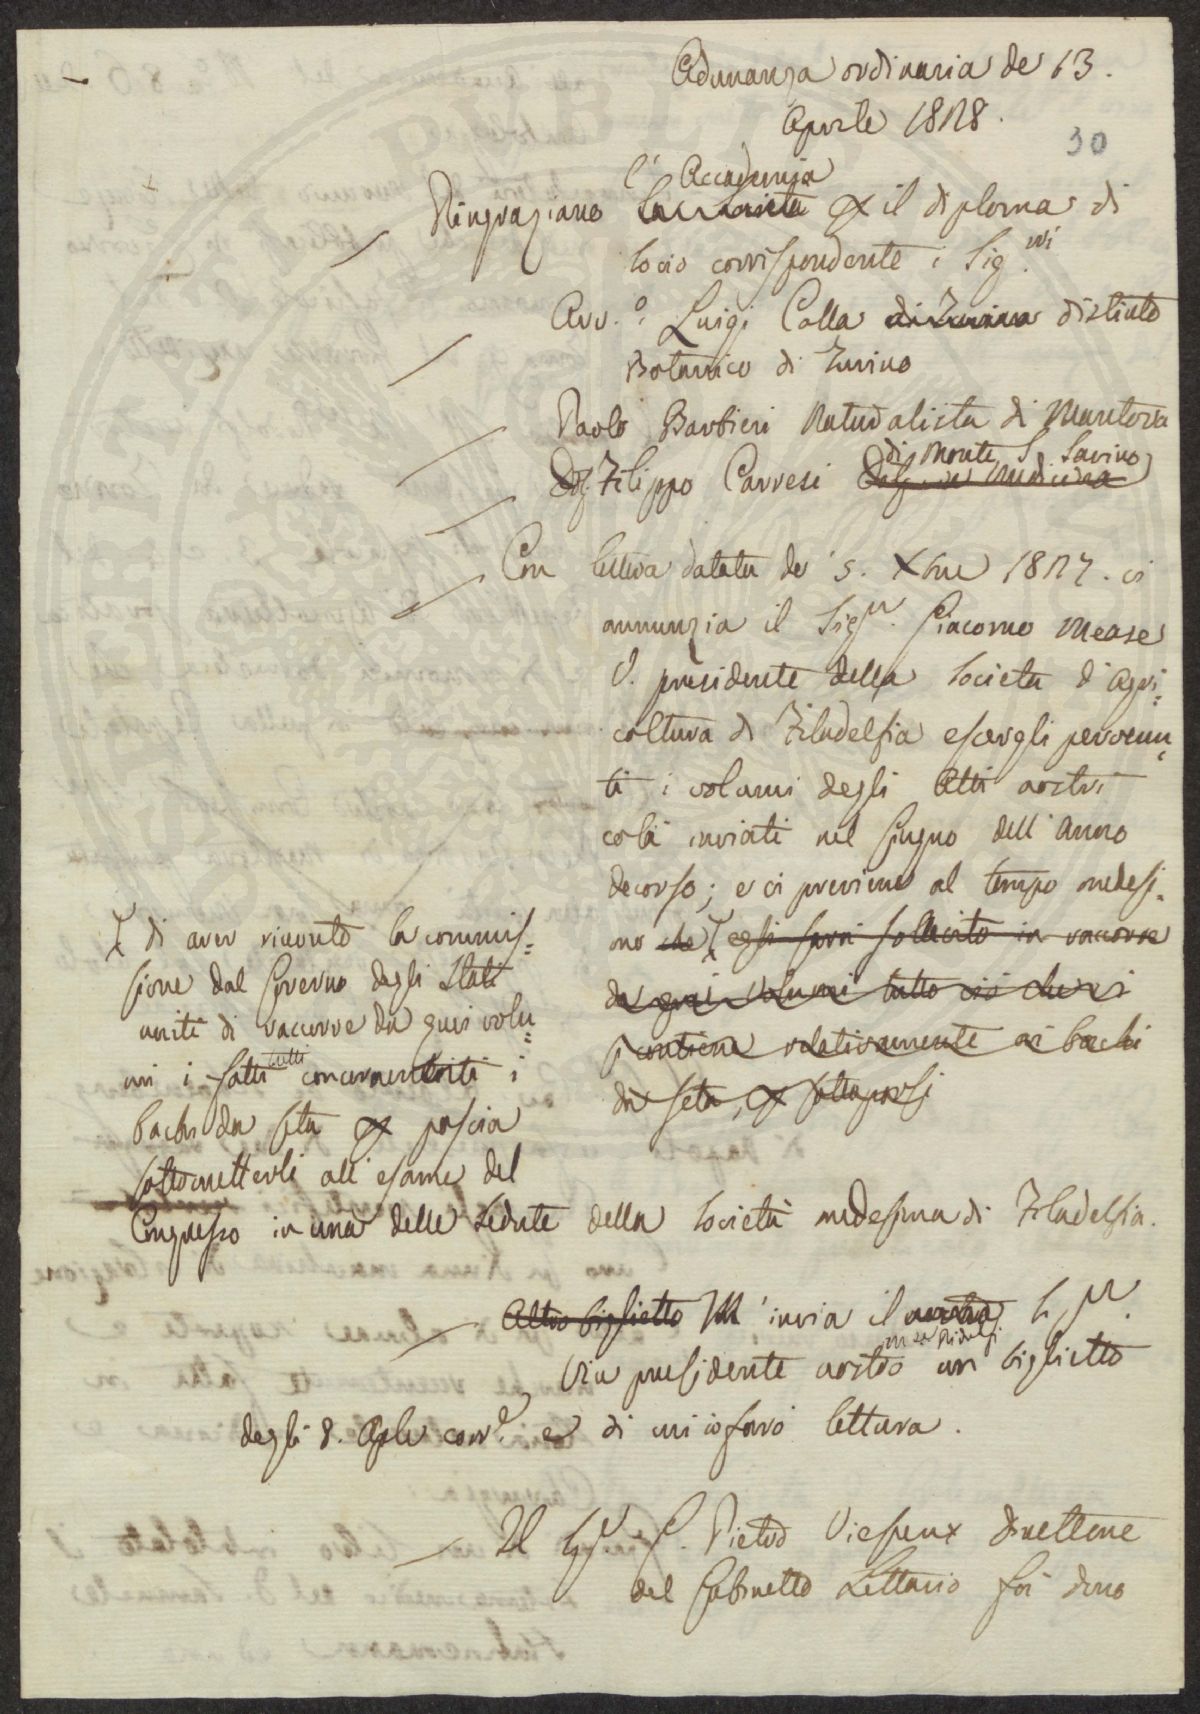 Adunanza ordinaria de' 13.
Aprile 1828.
30
l'Accademia
Ringraziano la Società per il diploma di
Socio corrispondente i Sig.ri
Avv.o Luigi Colla di Torino distinto
Botanico di Turino
Paolo Barbieri Naturalista di Mantova
di Monte S. Savino
Filippo Carresi Medicina
Con lettera datata de' 5. Xbre 1827. ci
annunzia il Sigr. Giacomo Mease
V. presidente della Società d'Agri=
coltura di Filadelfia essergli pervenu=
ti i volumi degli Atti nostri
colà inviati nel Giugno dell'Anno
decorso; e ci previene al tempo medesi=
mo che egli sarà sollecito in raccorre
da quei volumi tutto ciò che vi
si contiene relativamente ai bachi
da seta, per sottoporsi
di aver ricevuto la commis=
sione dal Governo degli Stati
uniti di raccorre da quei volu=
mi i fatti tutti concernenti i
bachi da seta per poscia
sottometterli all'esame del
Congresso in una delle Sedute della Società medesima di Filadelfia.
Altro biglietto M'invia il nostro Sigr.
Vice presidente nostro un biglietto
degli 8. Aple corr.e e di cui io farò lettura.
Il Sigr. G. Pietro Viesseux Direttore
del Gabinetto Letterario fa dono